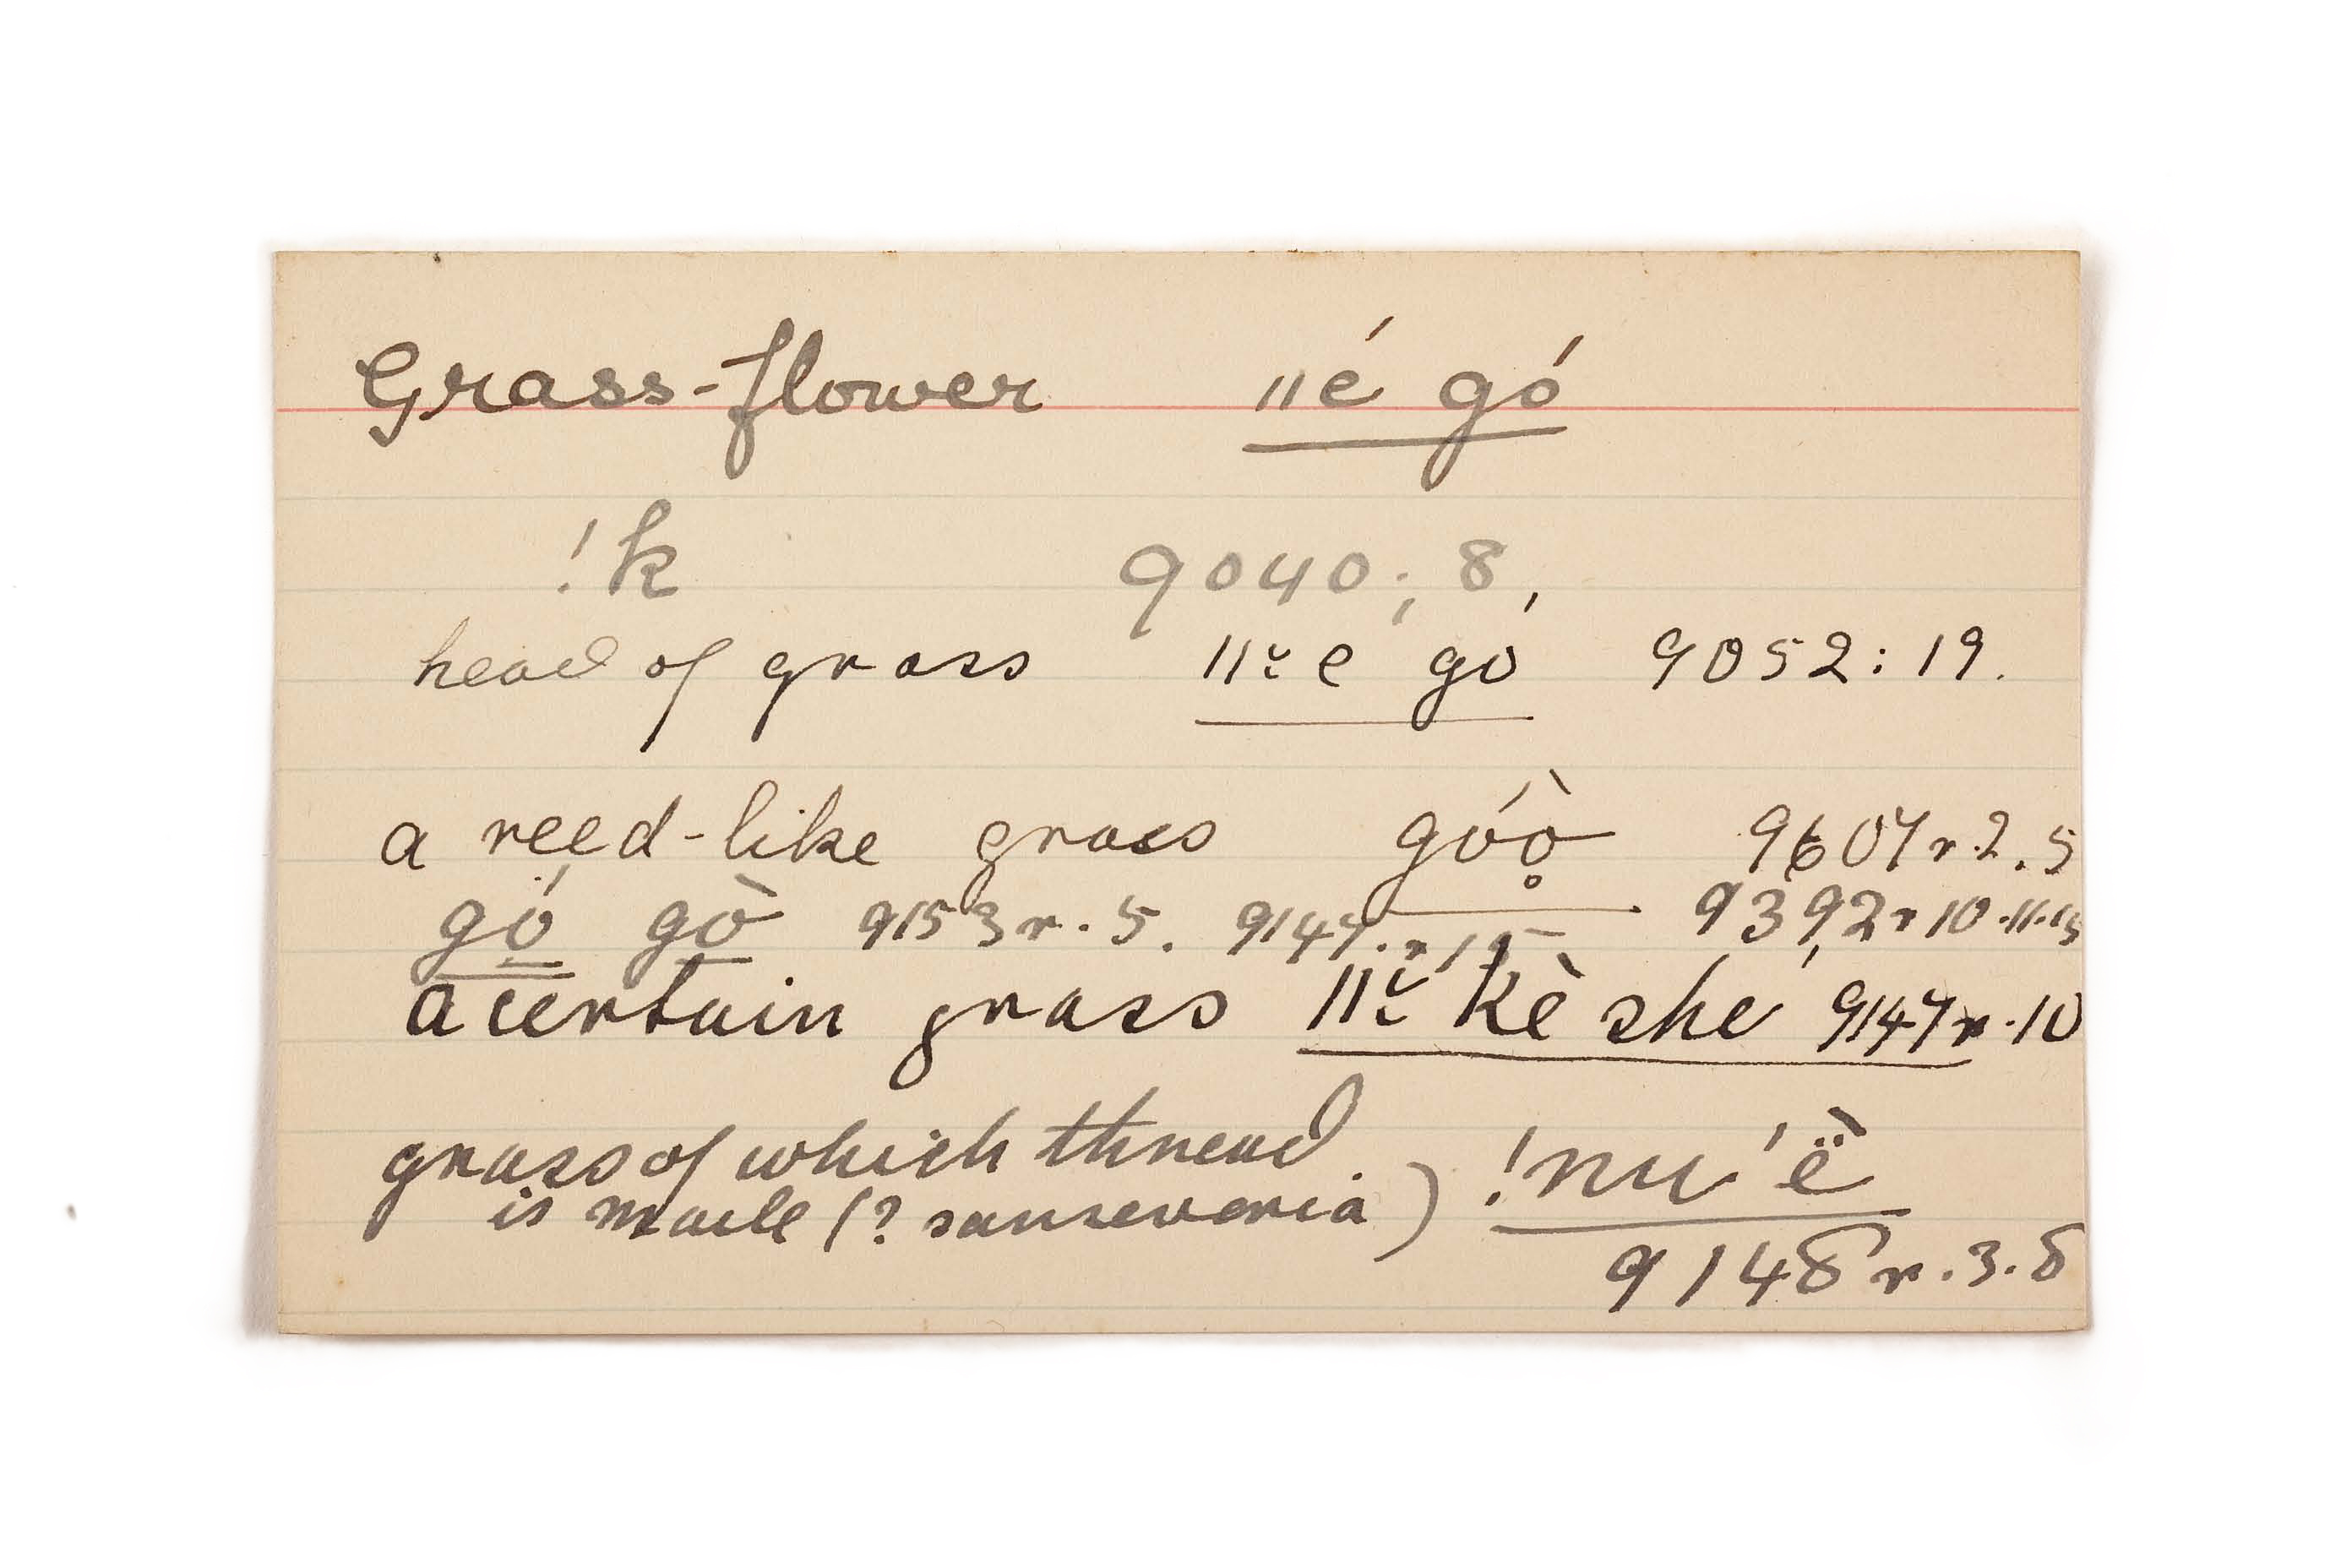 Grass-flower ǁé gó
!k 9040; 8,
head of grass ǁᵕe gó 9052: 19.
a reed-like grass góò̥ 9607r.2.5
gó gò 9153r.5. 9147.r15 9392r10.11.15
a certain grass ǁᵕ kè shé 9147r.10
grass of which thread !nu'ë̀
is made (? sanseveria)
9148r.3.8